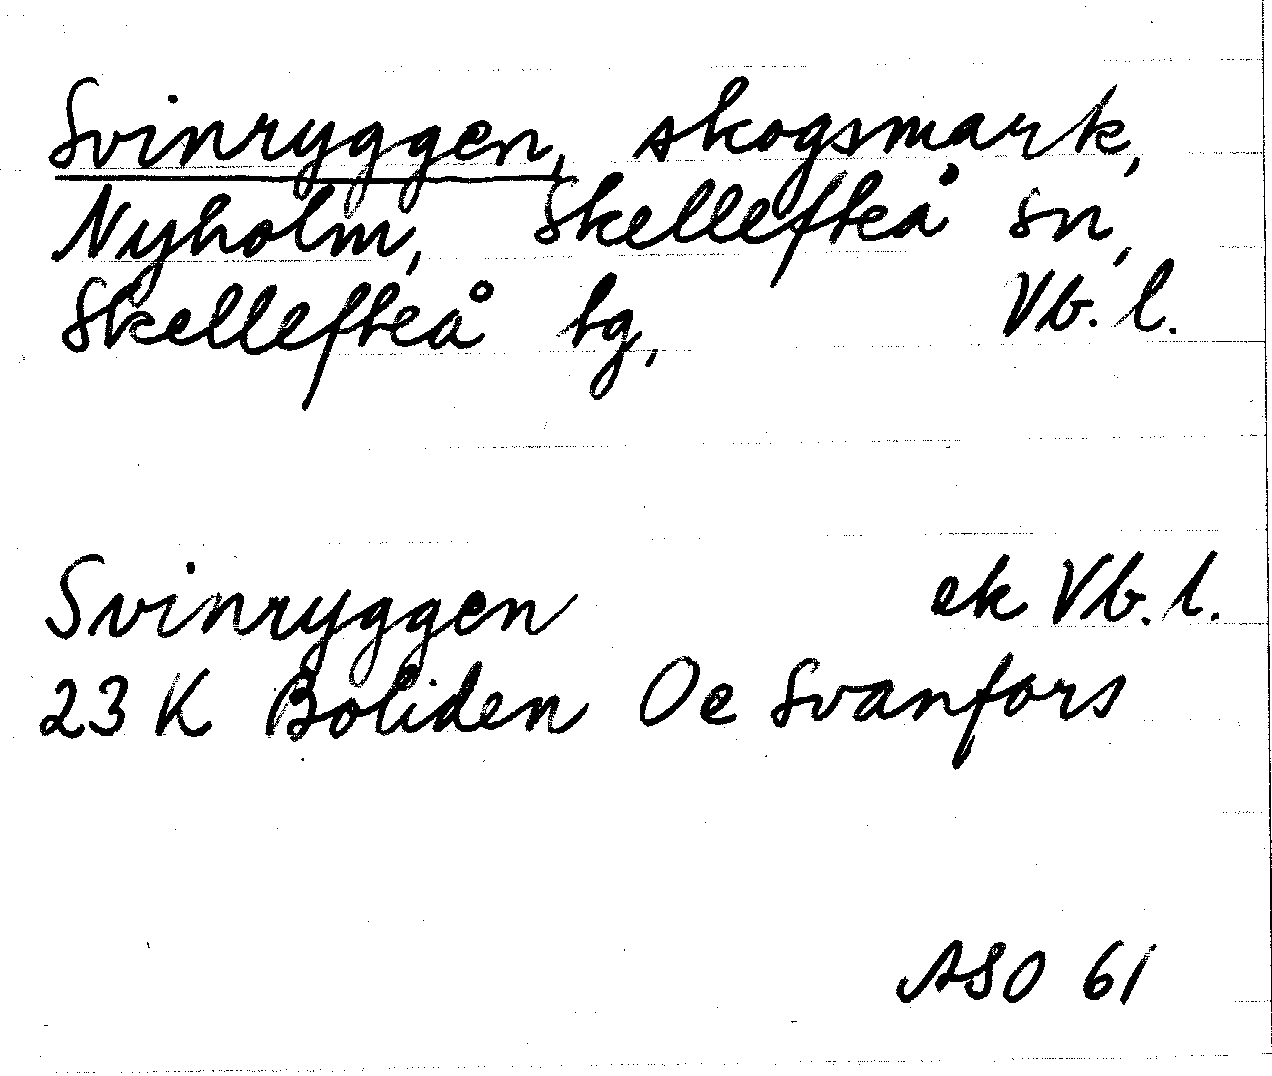 Svinryggen, skogsmark,
Nyholm, Skellefteå sn,
Skellefteå tg, Vb. l.
Svinryggen ek Vb. l.
23 K Boliden Oe Svanfors
ASO 61